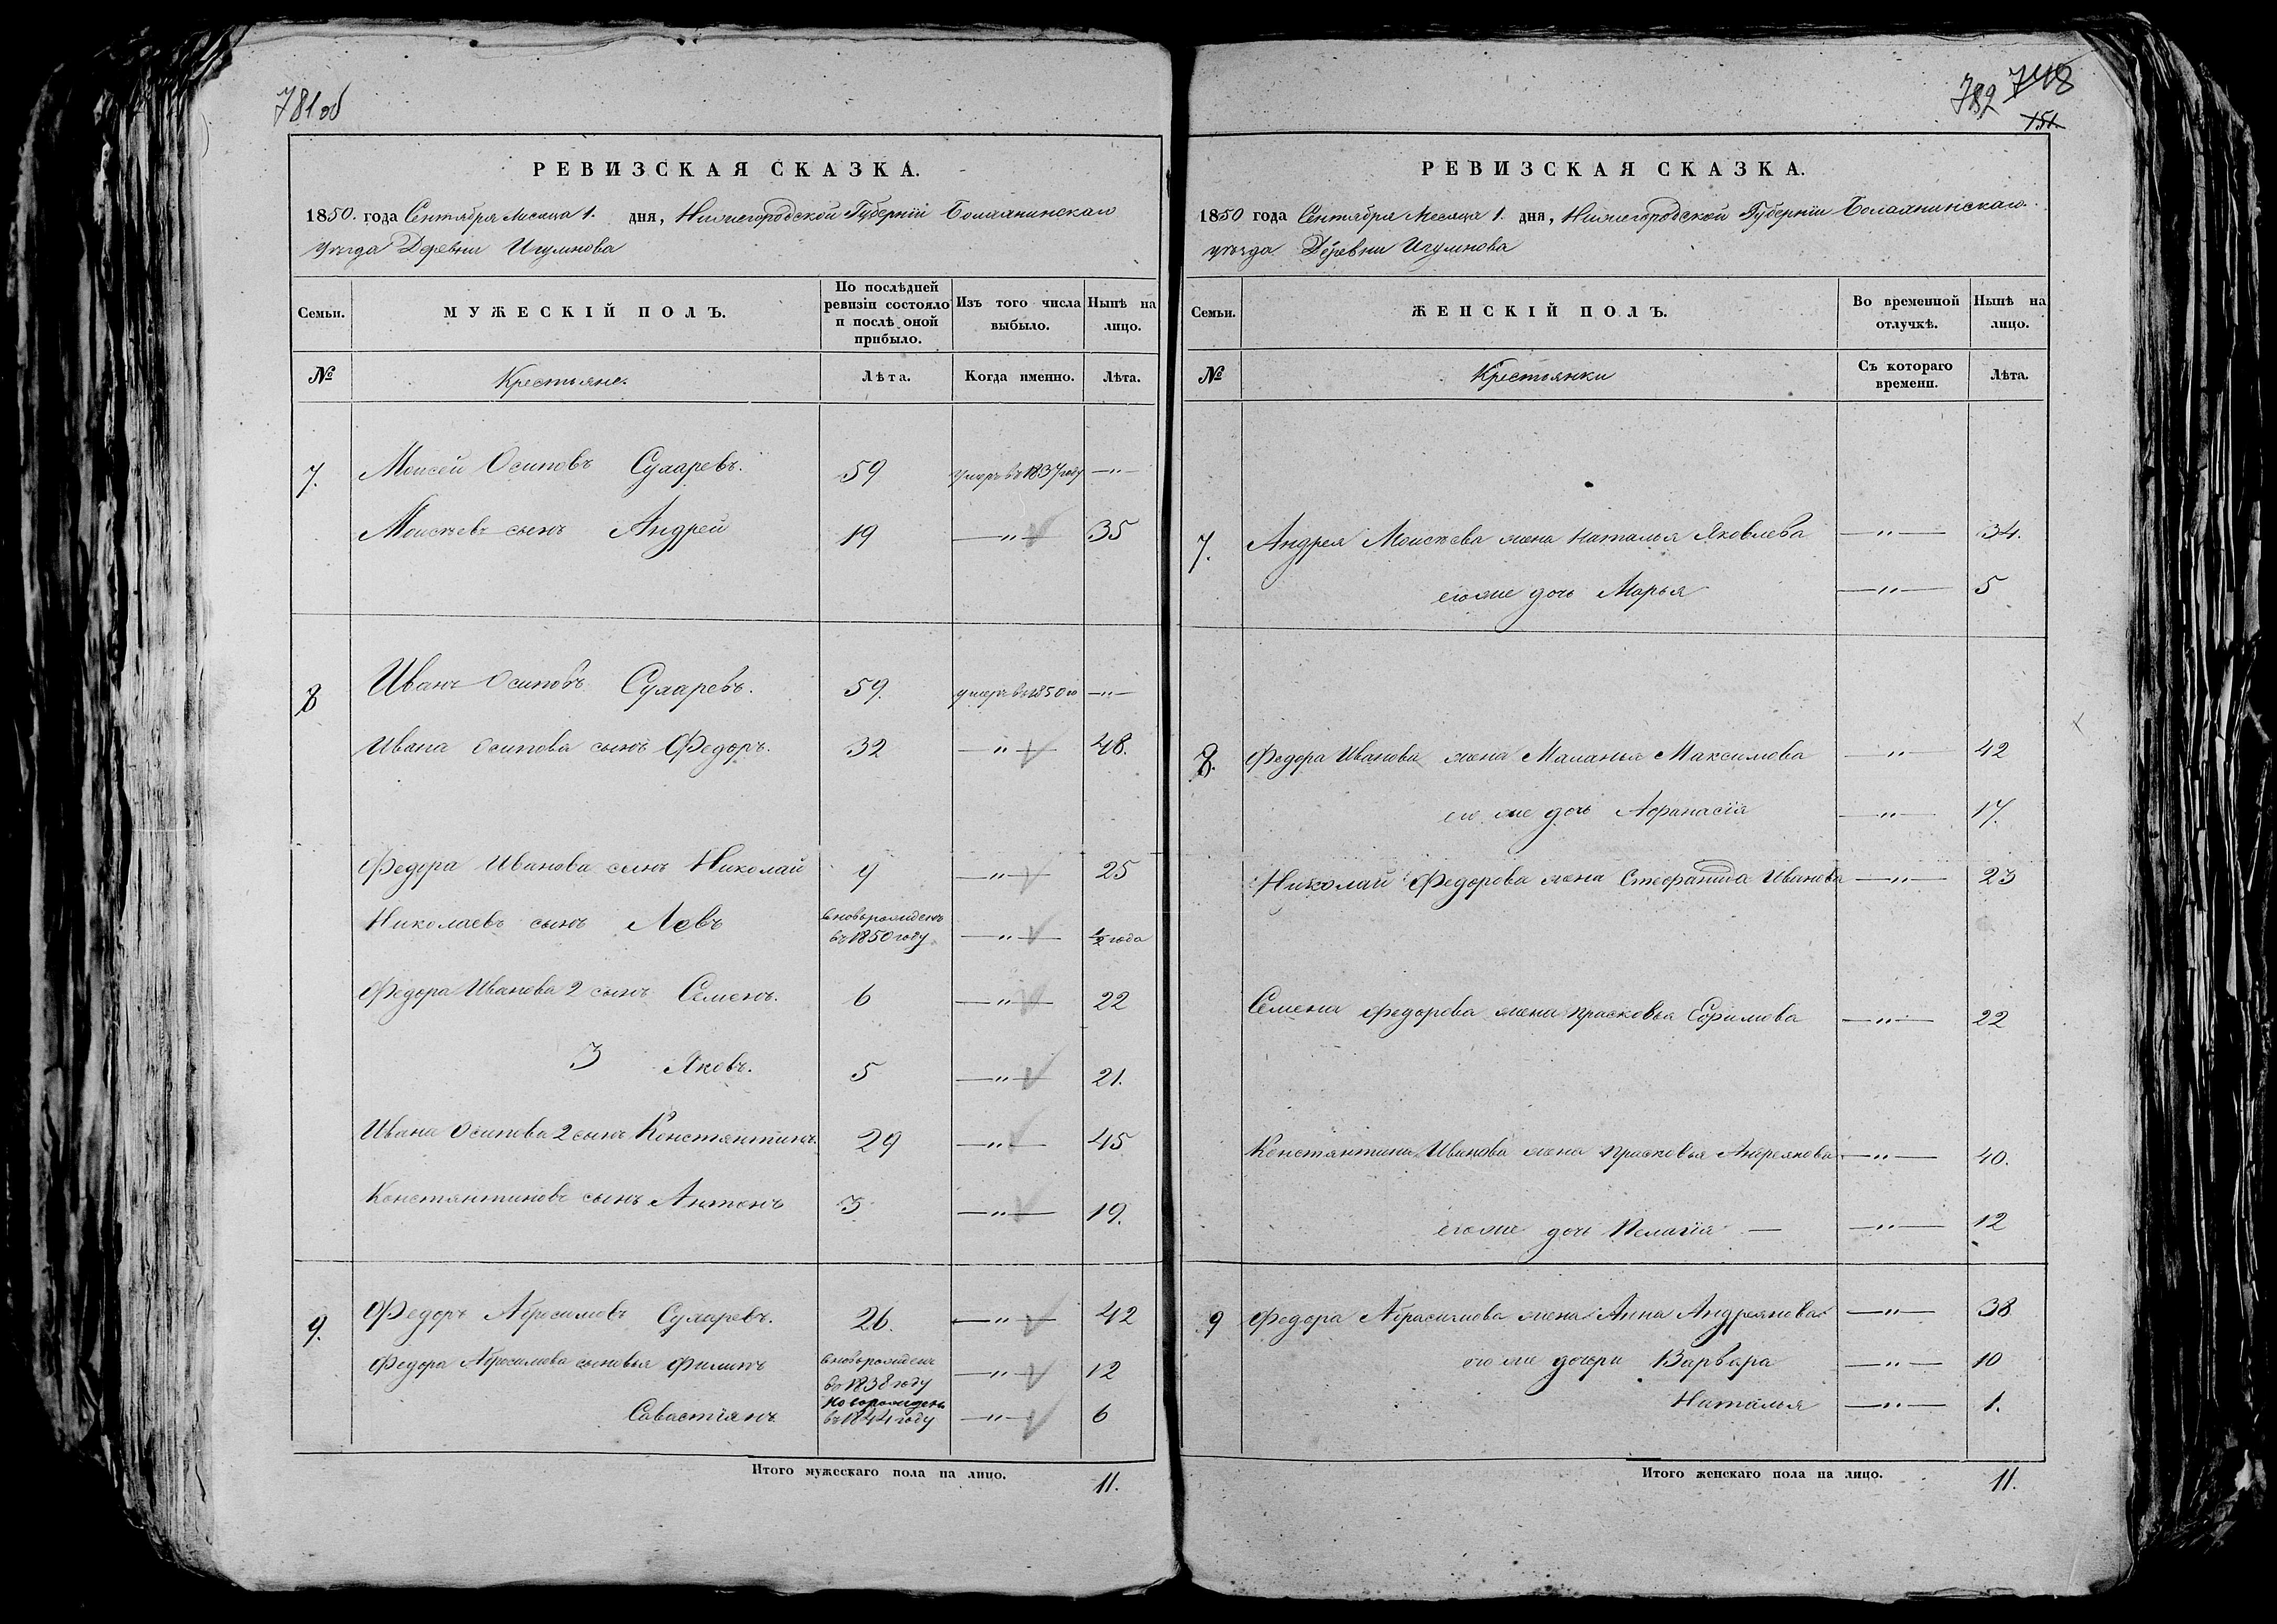 781 об
РЕВИЗСКАЯ СКАЗКА.
1850. года Сентября Месяца 1. дня, Нижегородской Губерніи Балахнинскаго
уѣзда Деревни Игумнова
Семьи.
МУЖЕСКІЙ ПОЛЪ.
По послѣдней ревизіи состояло и послѣ оной прибыло.
Изъ того числа выбыло.
Нынѣ на лицо.
№
Крестьяне.
Лѣта.
Когда именно.
Лѣта.
7. Моисей Осиповъ Сухаревъ. 59 умеръ въ 1837 году —"—
Моисѣевъ сынъ Андрей 19 —"— 35
8 Иванъ Осиповъ Сухаревъ. 59. умеръ въ 1850 го —"—
Ивана Осипова сынъ Федоръ. 32 —"— 48.
Федора Иванова сынъ Николай 9 —"— 25
Николаевъ сынъ Левъ вновьрожденъ въ 1850 году —"— 1/2 года
Федора Иванова 2 сынъ Семенъ. 6 —"— 22
3 Яковъ. 5 —"— 21.
Ивана Осипова 2 сынъ Констянтинъ. 29 —"— 45
Констянтиновъ сынъ Антонъ 3 —"— 19.
9. Федоръ Абросимовъ Сухаревъ. 26. —"— 42
Федора Абросимова сыновья Филипъ вновьрожденъ въ 1838 году —"— 12
Савастіянъ новорожденъ въ 1844 году —"— 6
Итого мужескаго пола на лицо. 11.
782 748
151
РЕВИЗСКАЯ СКАЗКА.
1850 года Сентября Месяца 1. дня, Нижегородской Губерніи Балахнинскаго
уѣзда Деревни Игумнова
Семьи.
ЖЕНСКІЙ ПОЛЪ.
Во временной отлучкѣ.
Нынѣ на лицо.
№
Крестьянки
Съ котораго времени.
Лѣта.
7. Андрея Моисѣева жена Наталья Яковлева —"— 34.
его же дочь Марья —"— 5
8. Федора Иванова жена Маланья Максимова —"— 42
его же дочь Афанасія —"— 17.
Николай Федорова жена Стефанида Иванова —"— 23
Семена Федорова жена Прасковья Ефимова —"— 22
Констянтина Иванова жена Прасковья Андреянова —"— 40.
его же дочь Пелагія — —"— 12
9 Федора Абрасимова жена Анна Андреянова —"— 38
его же дочери Варвара —"— 10
Наталья —"— 1.
Итого женскаго пола на лицо. 11.